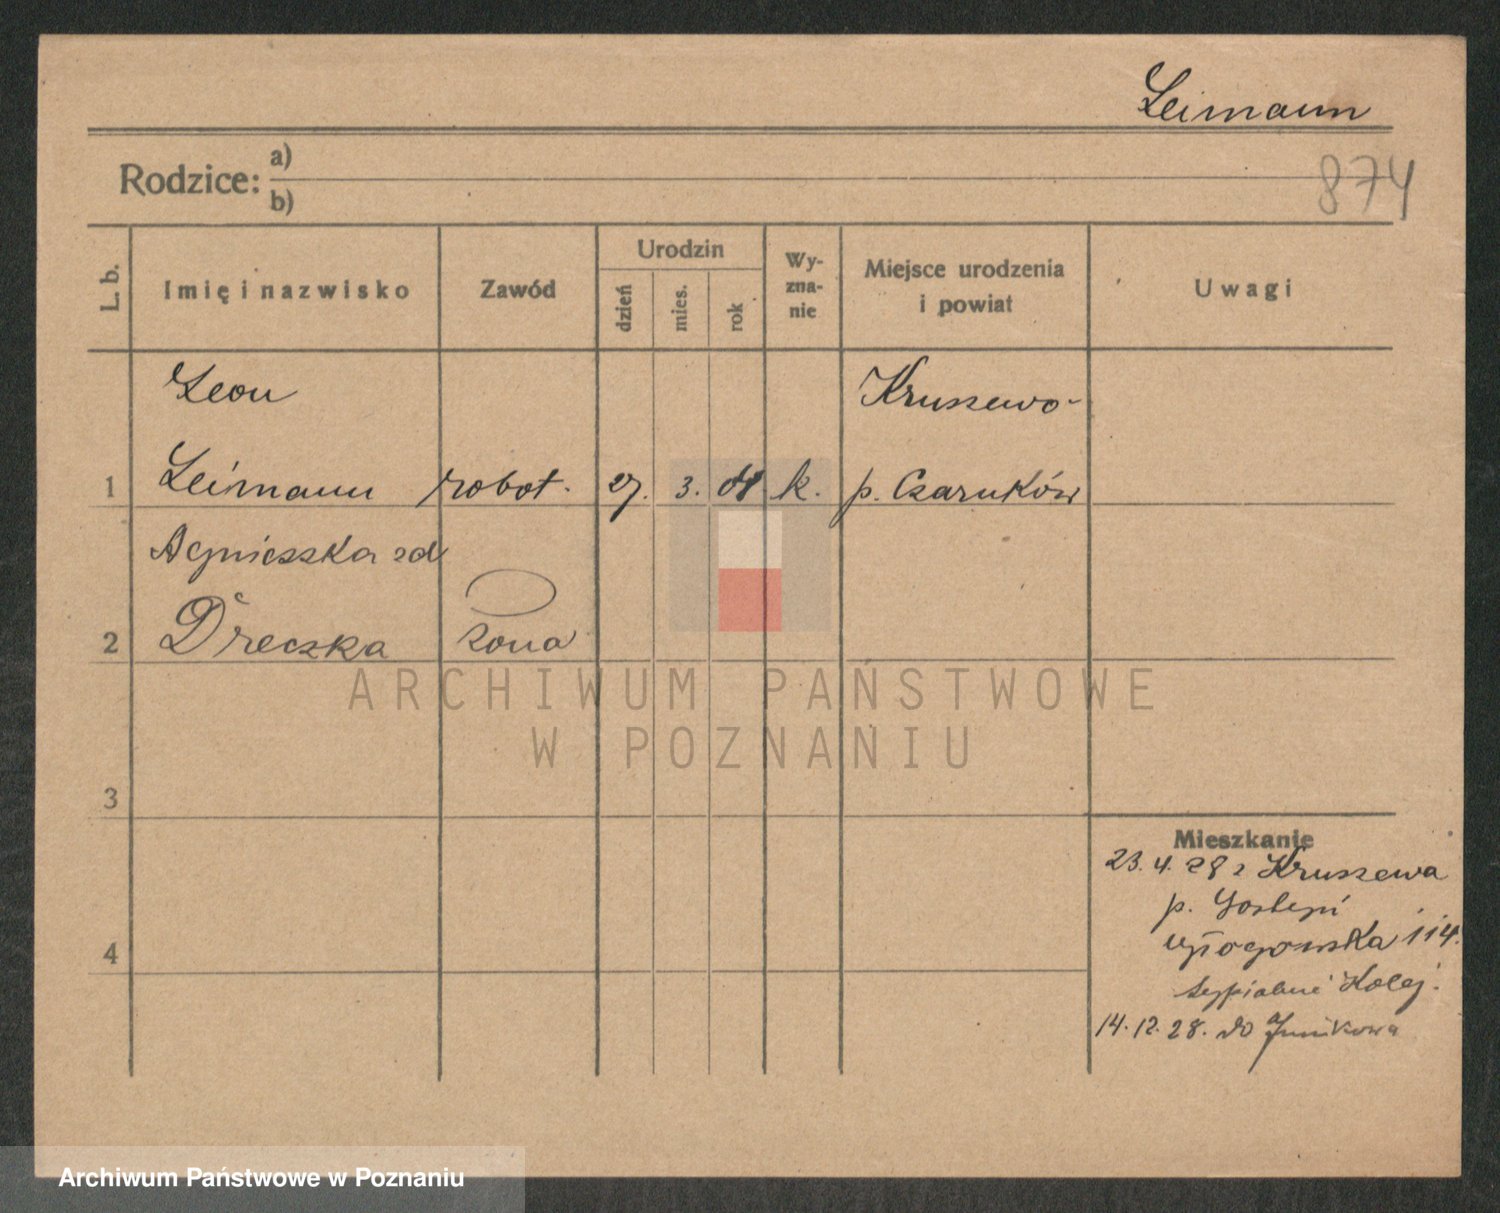 Leimann
Rodzice:
a)
b)
874
L. b.
Imię i nazwisko
Zawód
Urodzin
dzień
mies.
rok
Wy-
zna-
nie
Miejsce urodzenia
i powiat
Uwagi
Leon
Kruszewo-
1
Leimann
robot.
27.
3.
k.
p. Czarnków
Agnieszka zd
2
Dreczka
żona
ARCHIWUM PAŃSTWOWE
W POZNANIU
3
4
Mieszkanie
23. 4. 28 z Kruszewa
p.
Głogowska 114.
Kolej.
14. 12. 28. do Junikowa
Archiwum Państwowe w Poznaniu